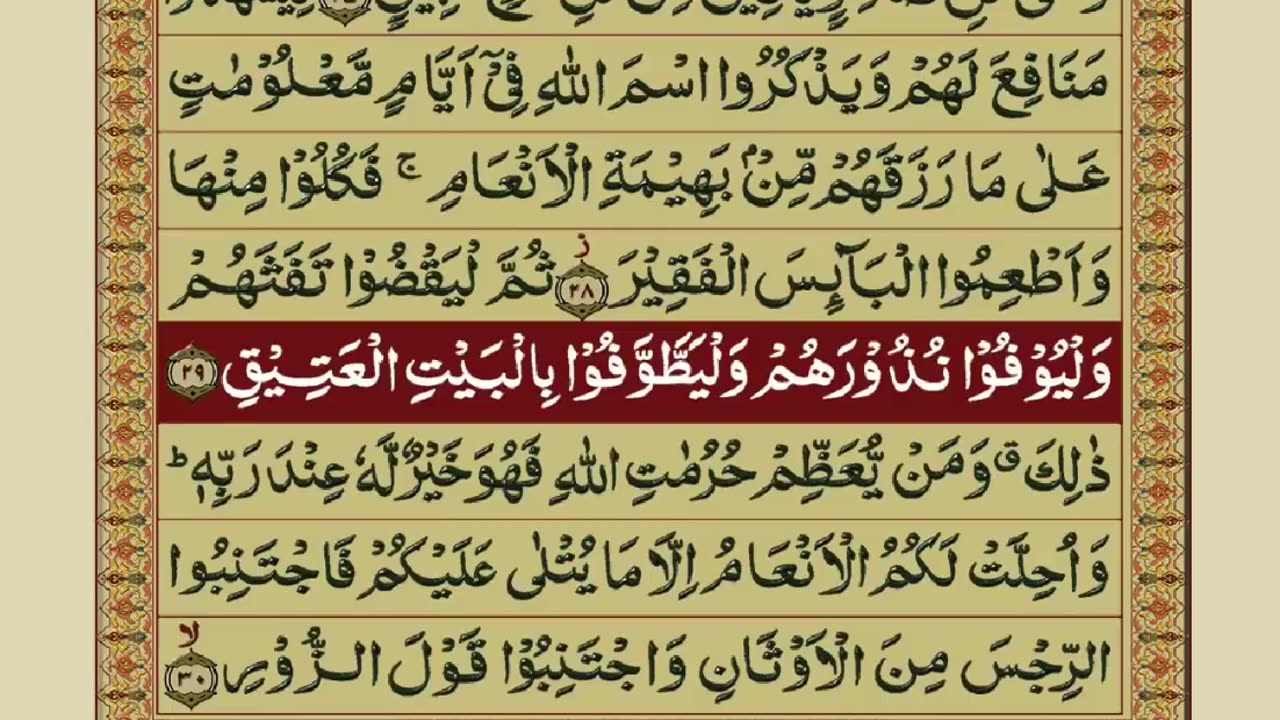 مَنَافِعَ لَهُمْ وَيَذْكُرُوا اسْمَ اللّٰهِ فِيْٓ اَيَّامٍ مَّعْلُوْمٰتٍ
عَلٰى مَا رَزَقَهُمْ مِّنْۢ بَهِيْمَةِ الْاَنْعَامِ ۚ فَكُلُوْا مِنْهَا
وَاَطْعِمُوا الْبَآئِسَ الْفَقِيْرَ ز ٢٨ ثُمَّ لْيَقْضُوْا تَفَثَهُمْ
وَلْيُوْفُوْا نُذُوْرَهُمْ وَلْيَطَّوَّفُوْا بِالْبَيْتِ الْعَتِيْقِ ٢٩
ذٰلِكَ ق وَمَنْ يُّعَظِّمْ حُرُمٰتِ اللّٰهِ فَهُوَ خَيْرٌ لَّهٗ عِنْدَ رَبِّهٖ ؕ
وَاُحِلَّتْ لَكُمُ الْاَنْعَامُ اِلَّا مَا يُتْلٰى عَلَيْكُمْ فَاجْتَنِبُوا
الرِّجْسَ مِنَ الْاَوْثَانِ وَاجْتَنِبُوْا قَوْلَ الزُّوْرِ لا ٣٠